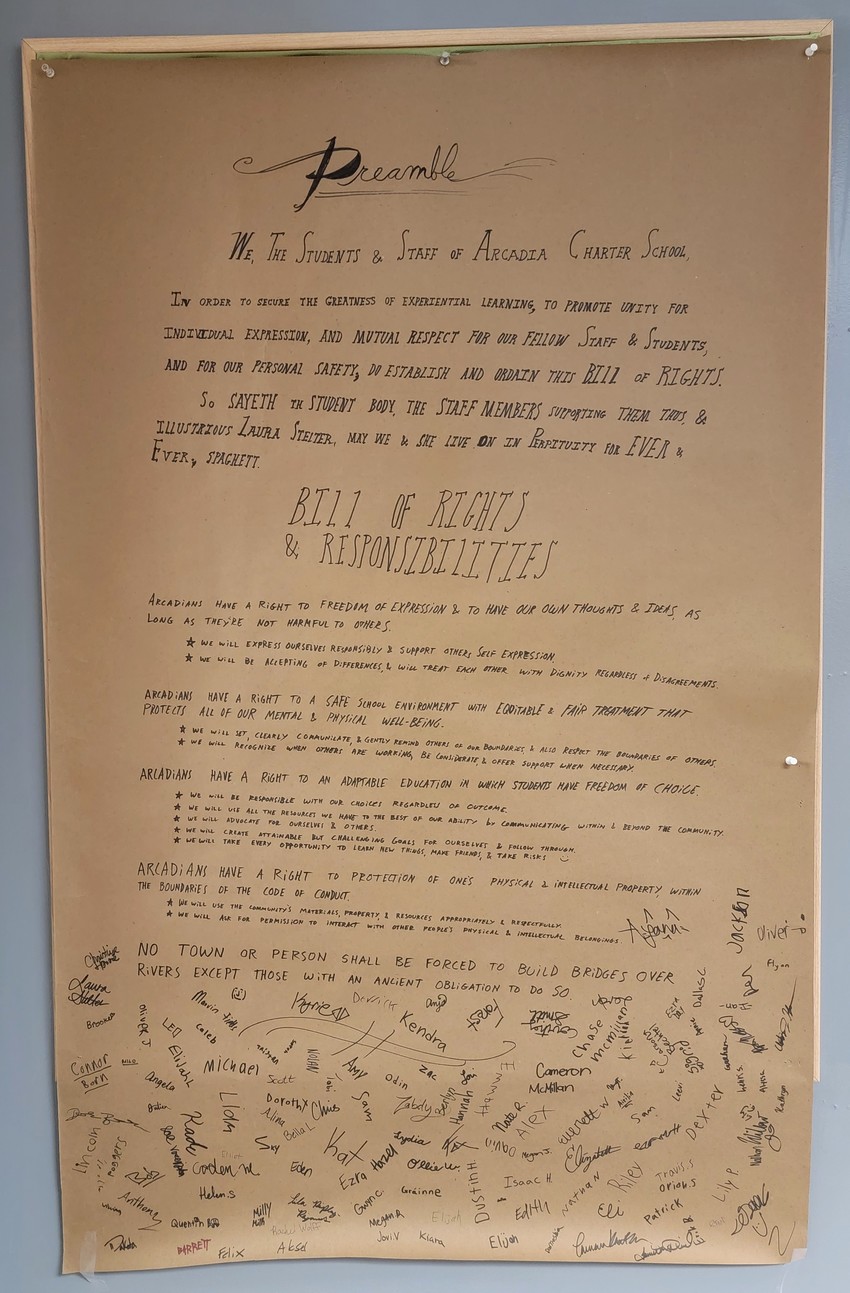 Preamble
WE, THE STUDENTS & STAFF OF ARCADIA CHARTER SCHOOL,
IN ORDER TO SECURE THE GREATNESS OF EXPERIENTIAL LEARNING, TO PROMOTE UNITY FOR
INDIVIDUAL EXPRESSION, AND MUTUAL RESPECT FOR OUR FELLOW STAFF & STUDENTS,
AND FOR OUR PERSONAL SAFETY, DO ESTABLISH AND ORDAIN THIS BILL OF RIGHTS.
SO SAYETH TH STUDENT BODY, THE STAFF MEMBERS SUPPORTING THEM THUS, &
ILLUSTRIOUS LAURA STELTER, MAY WE & SHE LIVE ON IN PERPITUITY FOR EVER &
EVER, SPAGHETT.
BILL OF RIGHTS
& RESPONSIBILITIES
ARCADIANS HAVE A RIGHT TO FREEDOM OF EXPRESSION & TO HAVE OUR OWN THOUGHTS & IDEAS, AS
LONG AS THEY'RE NOT HARMFUL TO OTHERS.
★ WE WILL EXPRESS OURSELVES RESPONSIBLY & SUPPORT OTHERS SELF EXPRESSION.
★ WE WILL BE ACCEPTING OF DIFFERENCES, & WILL TREAT EACH OTHER WITH DIGNITY REGARDLESS of DISAGREEMENTS.
ARCADIANS HAVE A RIGHT TO A SAFE SCHOOL ENVIRONMENT WITH EQUITABLE & FAIR TREATMENT THAT
PROTECTS ALL OF OUR MENTAL & PHYSICAL WELL-BEING.
★ WE WILL SET, CLEARLY COMMUNICATE, & GENTLY REMIND OTHERS OF OUR BOUNDARIES, & ALSO RESPECT THE BOUNDARIES OF OTHERS.
★ WE WILL RECOGNIZE WHEN OTHERS ARE WORKING, BE CONSIDERATE, & OFFER SUPPORT WHEN NECESSARY.
ARCADIANS HAVE A RIGHT TO AN ADAPTABLE EDUCATION IN WHICH STUDENTS HAVE FREEDOM OF CHOICE.
★ WE WILL BE RESPONSIBLE WITH OUR CHOICES REGARDLESS OF OUTCOME.
★ WE WILL USE ALL THE RESOURCES WE HAVE TO THE BEST OF OUR ABILITY by COMMUNICATING WITHIN & BEYOND THE COMMUNITY.
★ WE WILL ADVOCATE FOR OURSELVES & OTHERS.
★ WE WILL CREATE ATTAINABLE BUT CHALLENGING GOALS FOR OURSELVES & FOLLOW THROUGH.
★ WE WILL TAKE EVERY OPPORTUNITY TO LEARN NEW THINGS, MAKE FRIENDS, & TAKE RISKS
ARCADIANS HAVE A RIGHT TO PROTECTION OF ONE'S PHYSICAL & INTELLECTUAL PROPERTY WITHIN
THE BOUNDARIES OF THE CODE OF CONDUCT.
★ WE WILL USE THE COMMUNITY'S MATERIALS, PROPERTY, & RESOURCES APPROPRIATELY & RESPECTFULLY.
★ WE WILL ASK FOR PERMISSION TO INTERACT WITH OTHER PEOPLE'S PHYSICAL & INTELLECTUAL BELONGINGS.
NO TOWN OR PERSON SHALL BE FORCED TO BUILD BRIDGES OVER
RIVERS EXCEPT THOSE WITH AN ANCIENT OBLIGATION TO DO SO.
Jackson
Oliver
Flynn
Brooke
Oliver J
Leo
Caleb
Derrick
Kendra
Chase
McMillan
Connor
Born
Elijah
Michael
Angela
Scott
Amy
Odin
Zac
Cameron
McMillan
Liam
Dorothy
Alina
Bella L
Chris
Sam
Zabdy
Hannah
Emmett
Nate R.
Alex
Everett w
Sam
Dexter
Lincoln
Kade
Sky
Kat
Lydia
Ollie w.
Eden
Ezra
Hazel
Helen.S
Gwen C
Gráinne
Dustin H
Isaac H.
Nathan
Riley
Travis.S
Orion.S
Lily P
Anthony
Quentin
Milly
Megan R
Elijah
Edith
Eli
Patrick
BARRETT
Felix
Aksel
Jovi V
Kiara
Elijah